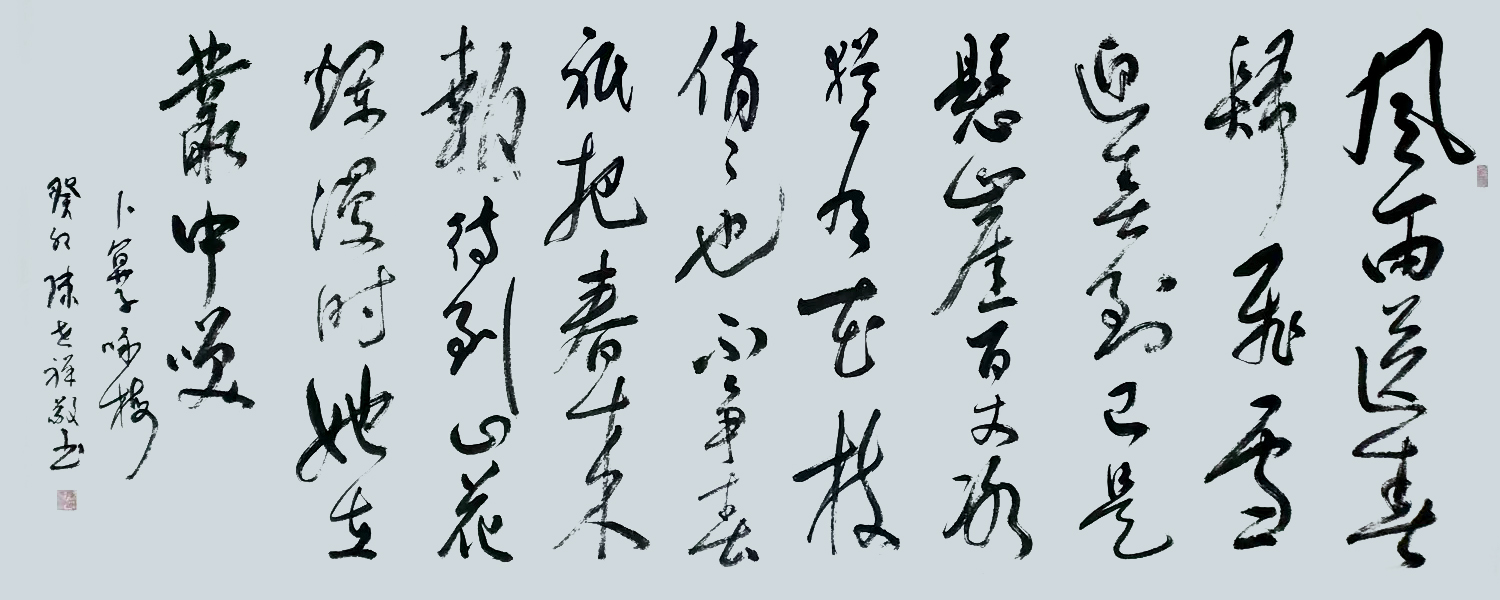 風雨送春
歸飛雪
迎春到已是
懸崖百丈冰
猶有花枝
俏俏也不争春
祇把春来
報待到山花
爛漫时她在
叢中笑
卜算子咏梅
癸卯陳老祥敬书